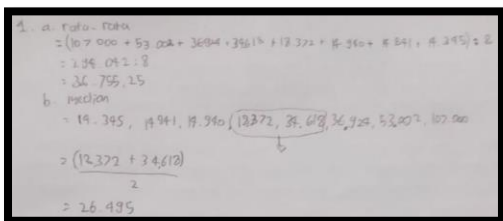 1. a. rata-rata
= (107.000 + 53.002 + 36924 + 34618 + 18.372 + 14.940 + 14.841 + 14.345) : 8
= 294.042 : 8
= 36.755,25
b. median
= 14.345, 14.941, 14.940, (18.372, 34.618), 36.924, 53.002, 107.000
b
= (18.372 + 34.618)
2
= 26.495